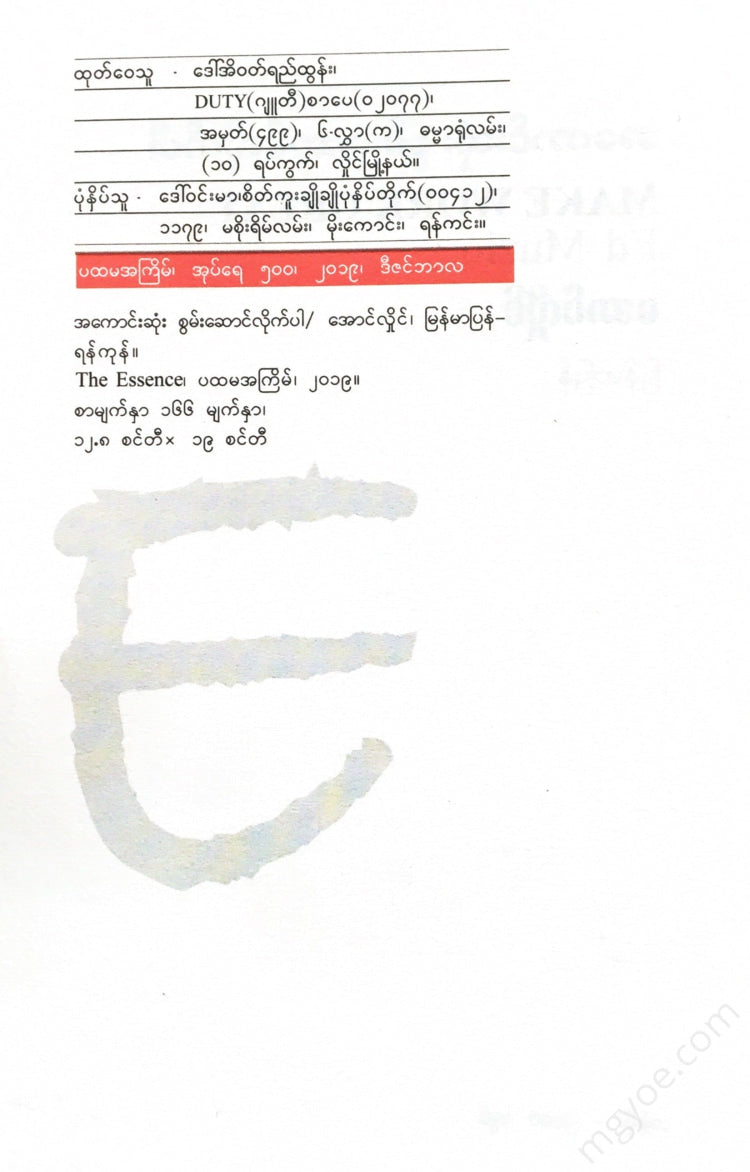 ထုတ်ဝေသူ - ဒေါ်အိဝတ်ရည်ထွန်း၊
DUTY(ဂျူတီ)စာပေ(၀၂၀၇၇)၊
အမှတ်(၄၉၉)၊ ၆-လွှာ(က)၊ ဓမ္မာရုံလမ်း၊
(၁၀) ရပ်ကွက်၊ လှိုင်မြို့နယ်။
ပုံနှိပ်သူ - ဒေါ်ဝင်းမာ၊စိတ်ကူးချိုချိုပုံနှိပ်တိုက်(၀၀၄၁၂)၊
၁၁၇၉၊ မစိုးရိမ်လမ်း၊ မိုးကောင်း၊ ရန်ကင်း။
ပထမအကြိမ်၊ အုပ်ရေ ၅၀၀၊ ၂၀၁၉၊ ဒီဇင်ဘာလ
အကောင်းဆုံး စွမ်းဆောင်လိုက်ပါ/ အောင်လှိုင်၊ မြန်မာပြန်–
ရန်ကုန်။
The Essence၊ ပထမအကြိမ်၊ ၂၀၁၉။
စာမျက်နှာ ၁၆၆ မျက်နှာ၊
၁၂.၈ စင်တီ× ၁၉ စင်တီ
mgyoe.com